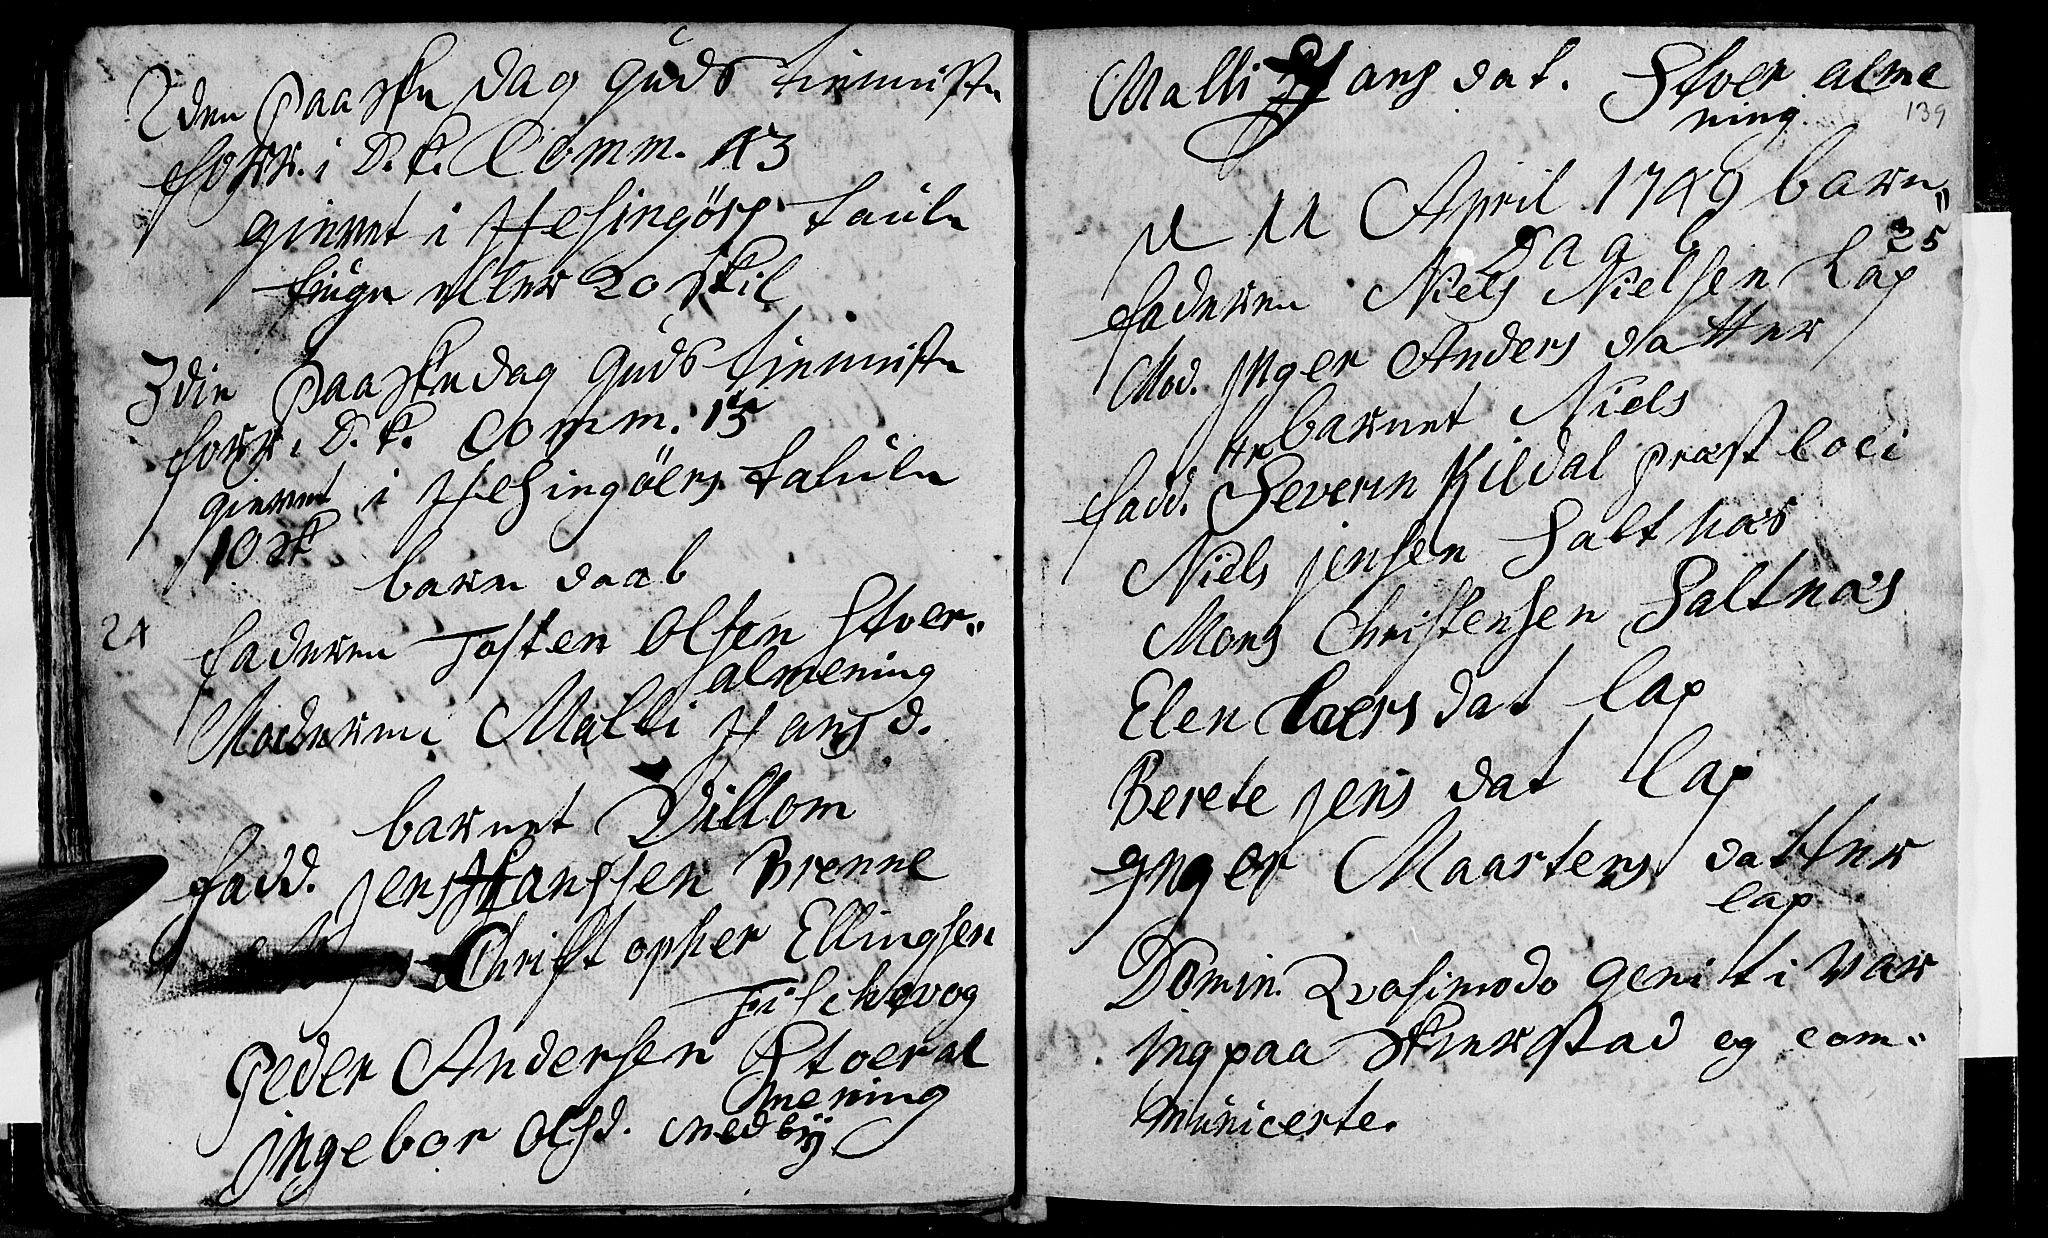 2den Paaske Dag Guds tienniste
forr. i S. k. Comm. 43
gievet i Helsingörs taule
kirke eller 20 skil
3die Paaskedag Guds tienniste
forr. i S. k. Comm. 15
gievet i Helsingöers tafule
10 sk
barn daab
24
faderen Tosten Olsen Stver„
almening
Moderen Malli Hans d.
barnet Villom
fadd. Jens Hanssen Brenne
Christopher Ellingsen
Fischevog
Peder Andersen Stoeral
mening
Ingebor Olsd. Nedbÿ
Malli Hans dat. Stver alme
ning
139
d 11 April 1749 barn„
daab
25
faderen Niels Nielsen Lap
Mod. Inger Anders datter
barnet Niels
fadd. Hr Severin Kildal præst loci
Niels Jensen Saltnæs
Mons Christensen Saltnæs
Elen Laers dat Lap
Berete Jens dat Lap
Inger Maartens datter
Lap
Domin. Qvasimodo geniti var
ing paa Skierstad og com„
municerte.